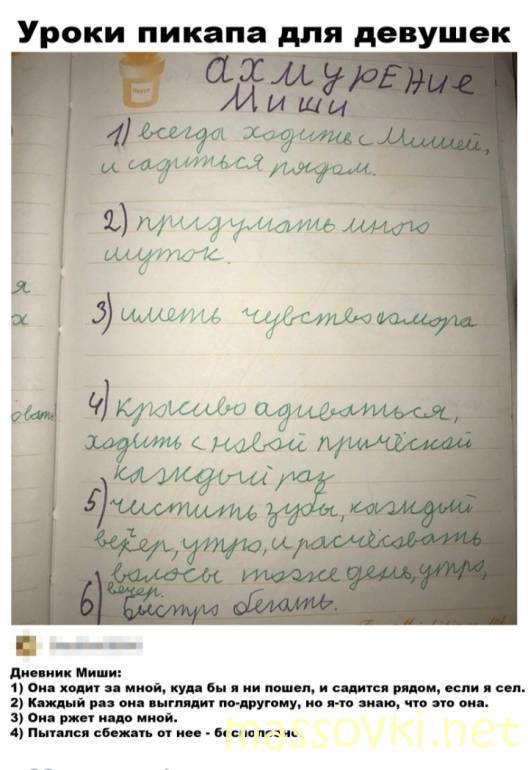 Уроки пикапа для девушек
ахмурение
Миши
1) всегда ходить с Мишей,
и садиться рядом.
2) придумать много
шуток.
я
х
3) иметь чувство юмора
овать
4) красиво адиваться,
ходить с новой причёской
каждый раз
5) чистить зубы, каждый
вечер, утро, и расчёсовать
волосы тоже день, утро,
вечер.
6) Быстро бегать.
Дневник Миши:
1) Она ходит за мной, куда бы я ни пошел, и садится рядом, если я сел.
2) Каждый раз она выглядит по-другому, но я-то знаю, что это она.
3) Она ржет надо мной.
4) Пытался сбежать от нее - бесполезно.
massovki.net